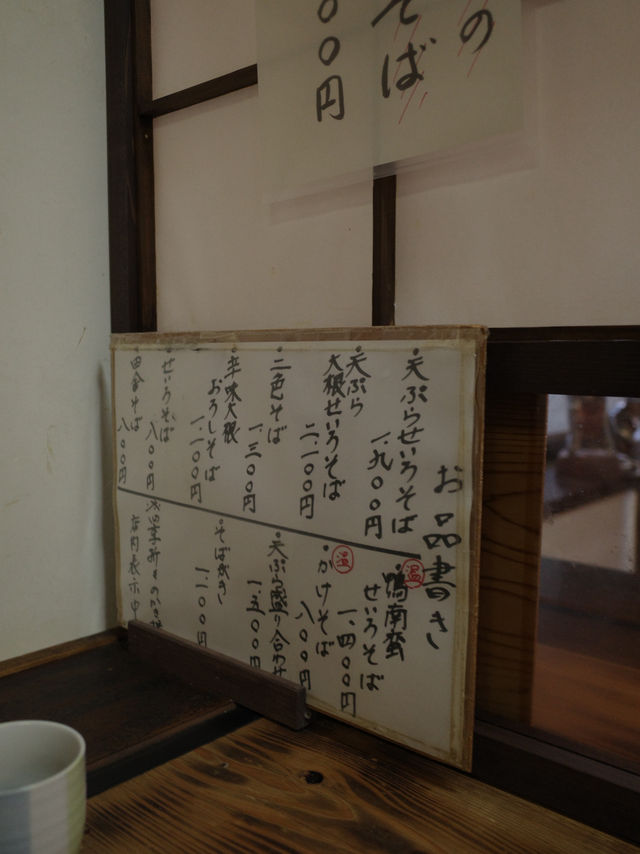 の
そば
００円
お品書き
・天ぷらせいろそば
一、九〇〇円
・天ぷら
大根せいろそば
二、一〇〇円
・二色そば
一、三〇〇円
・辛味大根
おろしそば
一、一〇〇円
・せいろそば
八〇〇円
・田舎そば
八〇〇円
温
・鴨南蛮
せいろそば
一、四〇〇円
温
・かけそば
八〇〇円
・天ぷら盛り合わせ
一、五〇〇円
・そばがき
一、一〇〇円
店内表示中